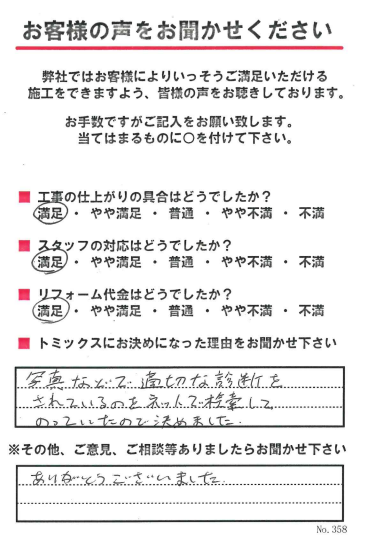 お客様の声をお聞かせください
弊社ではお客様によりいっそうご満足いただける
施工をできますよう、皆様の声をお聴きしております。
お手数ですがご記入をお願い致します。
当てはまるものに○を付けて下さい。
■ 工事の仕上がりの具合はどうでしたか？
満足 ・ やや満足 ・ 普通 ・ やや不満 ・ 不満
■ スタッフの対応はどうでしたか？
満足 ・ やや満足 ・ 普通 ・ やや不満 ・ 不満
■ リフォーム代金はどうでしたか？
満足 ・ やや満足 ・ 普通 ・ やや不満 ・ 不満
■ トミックスにお決めになった理由をお聞かせ下さい
写真などで適切な診断を
されているのをネットで検索して
のっていたので決めました.
※その他、ご意見、ご相談等ありましたらお聞かせ下さい
ありがとうございました.
No. 358